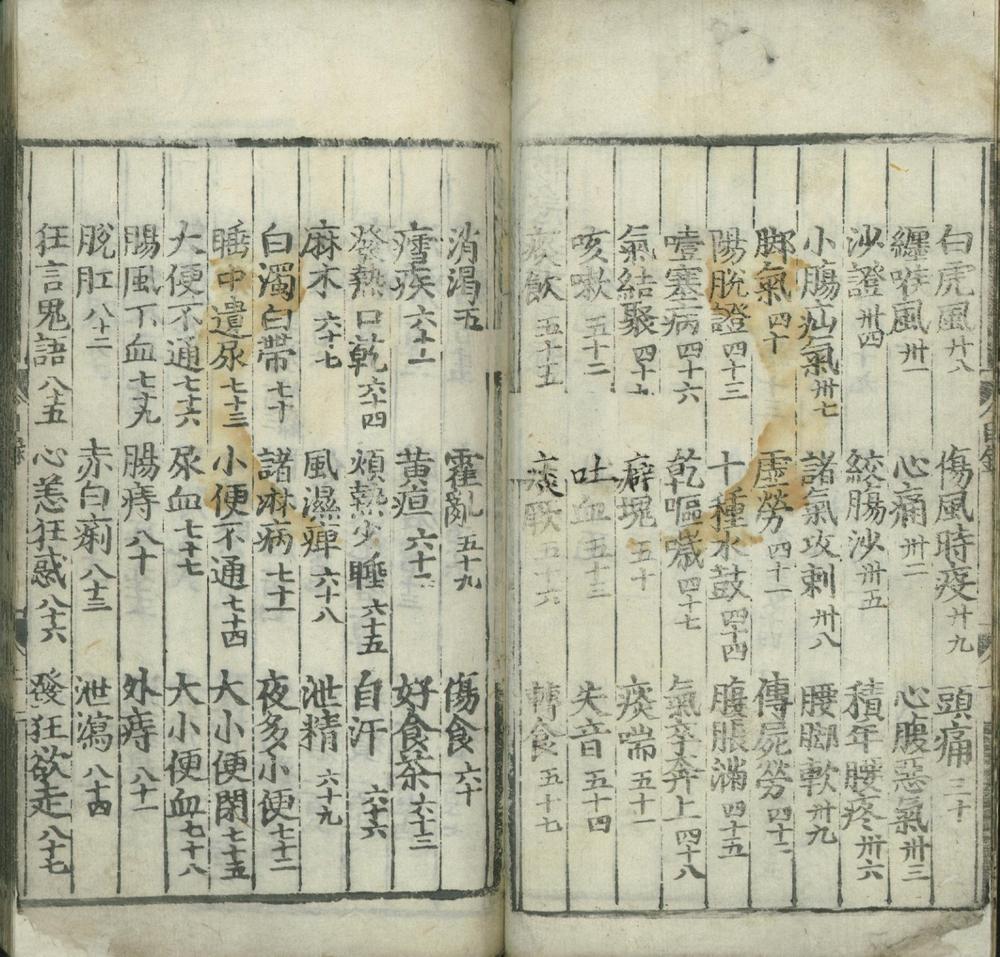 白虎風廿八 傷風時疫廿九 頭痛三十
纏喉風卅一 心痛卅二 心腹惡氣卅三
沙證卅四 絞腸沙卅五 積年腰疼卅六
小腸疝氣卅七 諸氣攻刺卅八 腰脚軟卅九
脚氣四十 虛勞四十一 傳屍勞四十二
陽脫證四十三 十種水鼓四十四 腹脹滿四十五
噎塞病四十六 乾嘔噦四十七 氣卒奔上四十八
氣結聚四十九 癖塊五十 痰喘五十一
咳嗽五十二 吐血五十三 失音五十四
痰飲五十五 痰五十六 轉食五十七
消渴五 霍亂五十九 傷食六十
瘧疾六十一 黃疸六十二 好食茶六十三
發熱口乾六十四 煩熱少睡六十五 自汗六十六
麻木六十七 風濕痺六十八 泄精六十九
白濁白帶七十 諸淋病七十一 夜多小便七十二
睡中遺尿七十三 小便不通七十四 大小便閉七十五
大便不通七十六 尿血七十七 大小便血七十八
腸風下血七十九 腸痔八十 外痔八十一
脫肛八十二 赤白痢八十三 泄瀉八十四
狂言鬼語八十五 心恙狂惑八十六 發狂欲走八十七
目錄